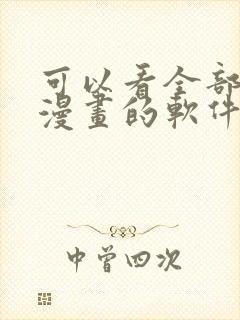 可以看全部
漫畫的軟件
中曾四次